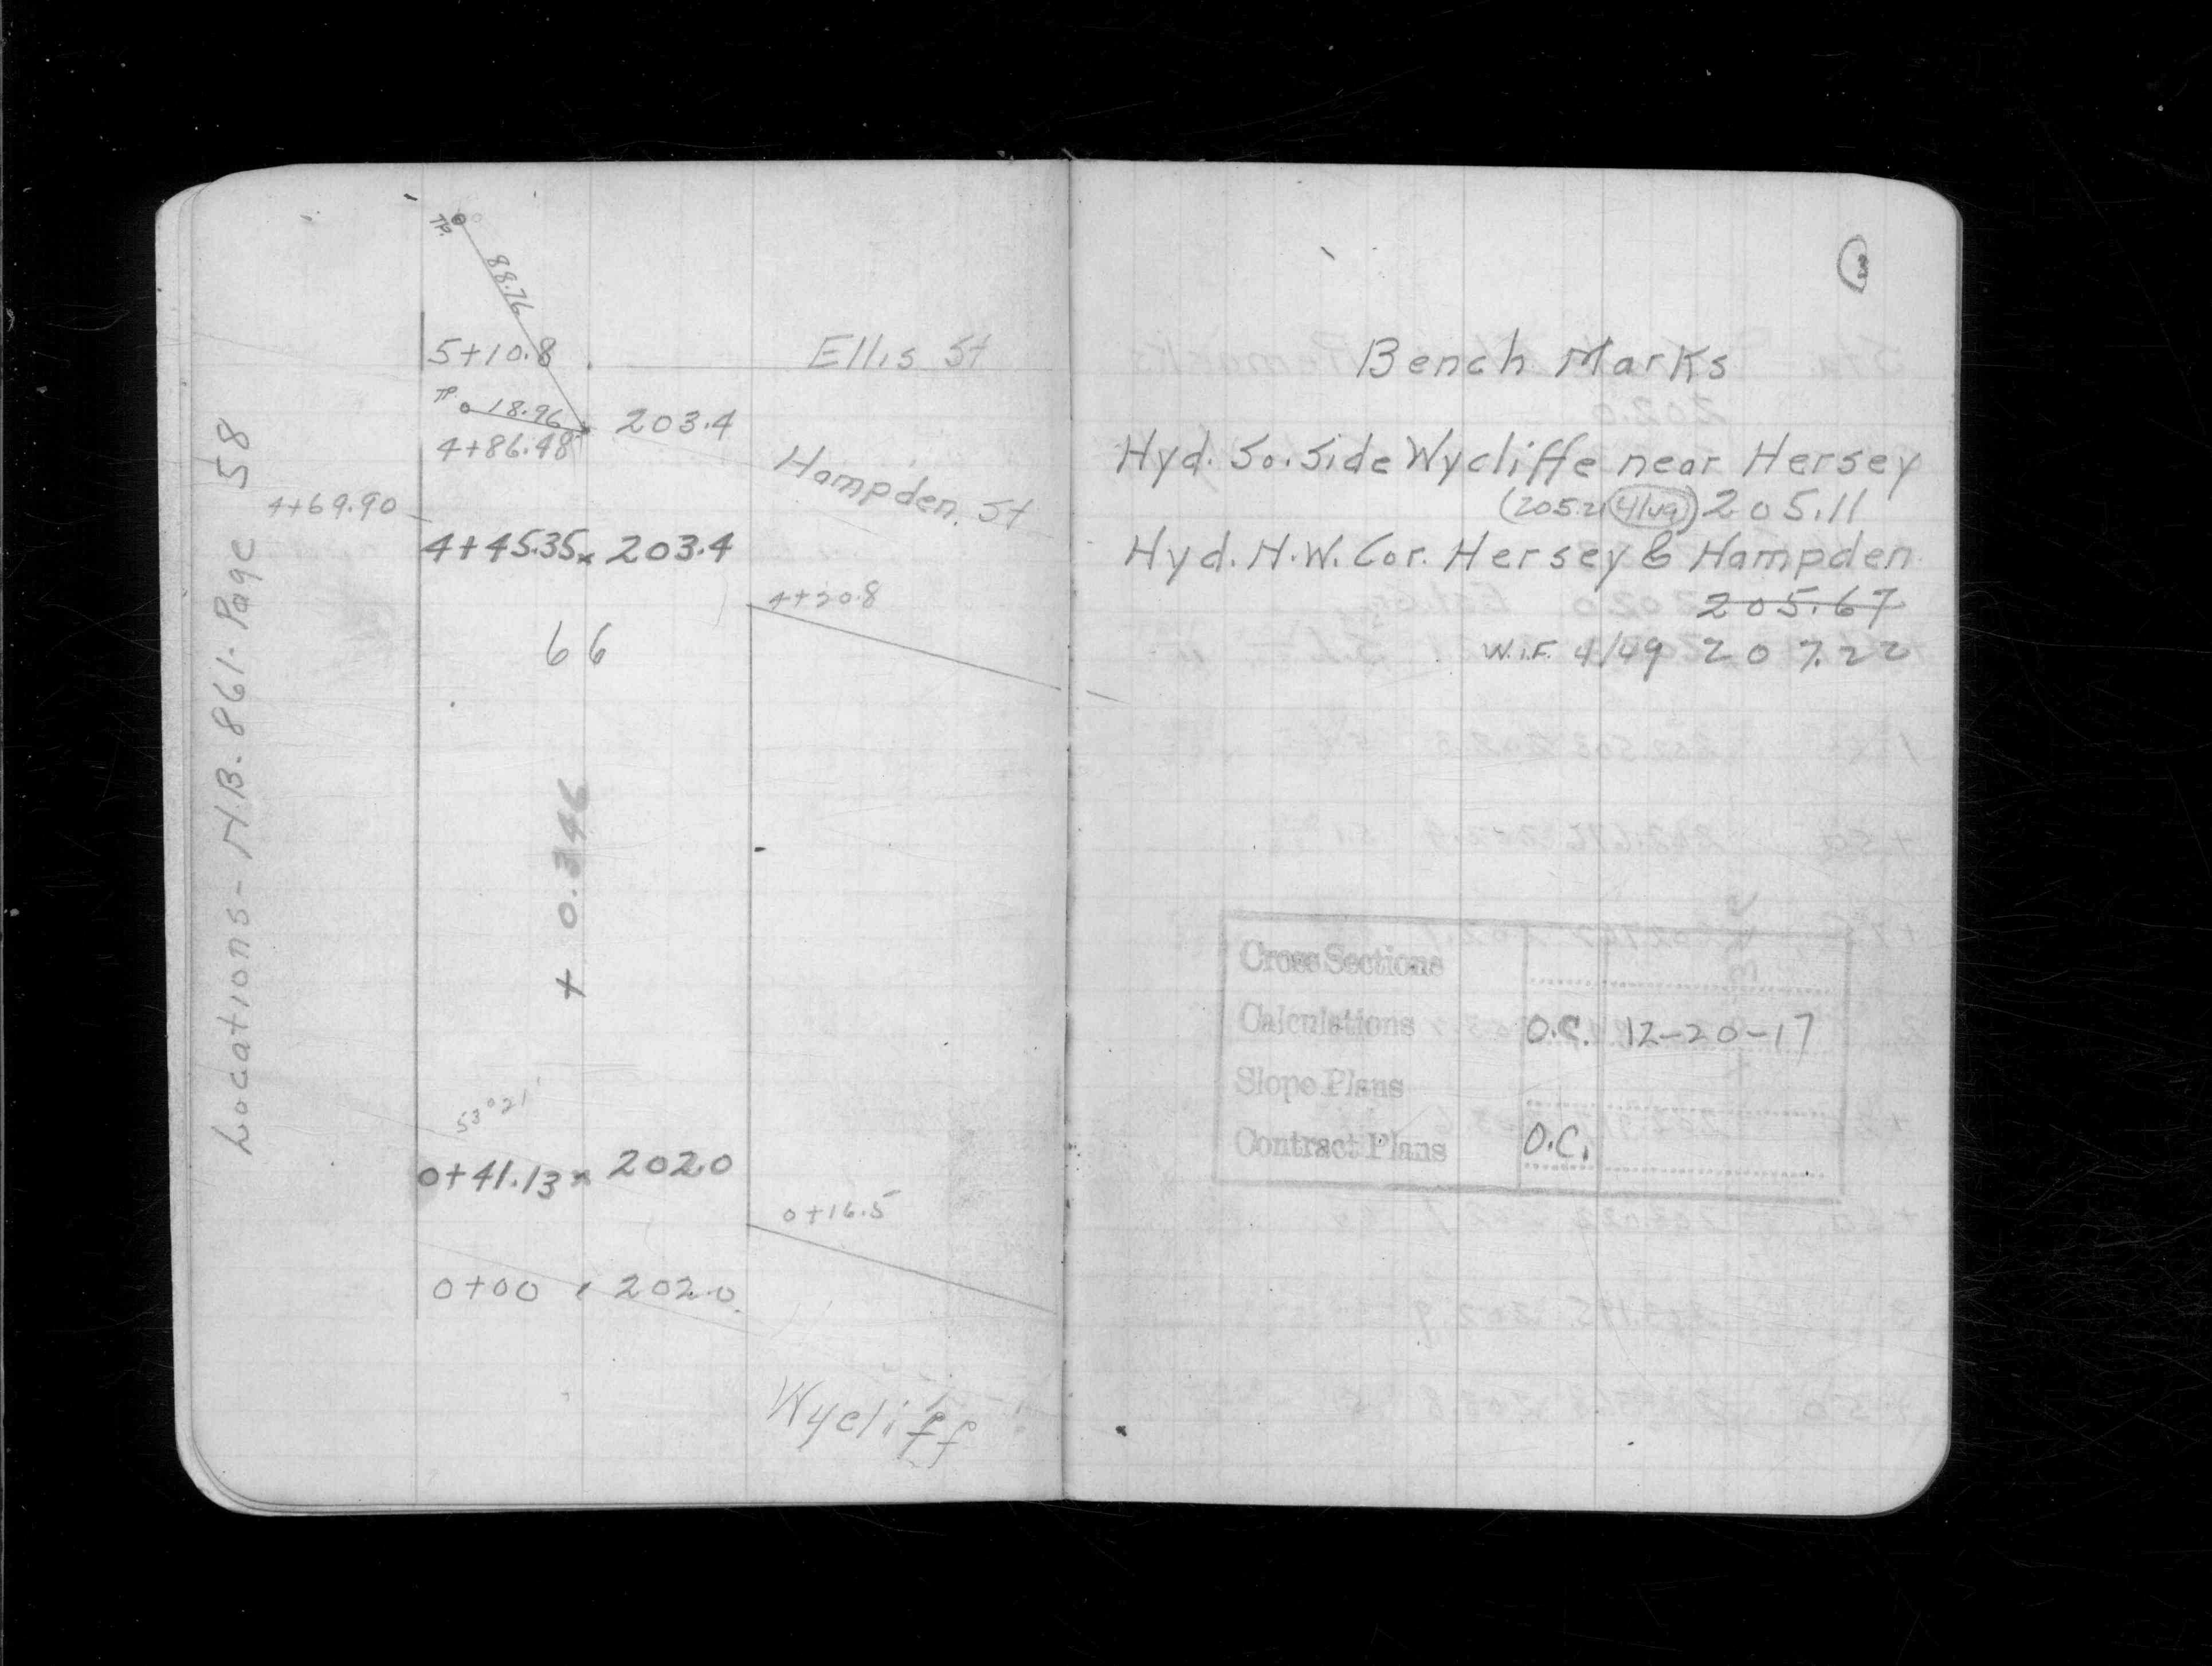 T.P.
88.76
5+10.8
Ellis St
T.P. 18.96
203.4
4+86.48
Hampden. St
4+69.90
4+45.35 x 203.4
4+20.8
66
+ 0.346
Locations - N.B. 861. Page 58
53°21'
0+41.13 x 202.0
0+16.5
0+00 202.0
Wycliff
3
Bench Marks
Hyd. So. Side Wycliffe near Hersey
(205.21 4/49) 205.11
Hyd. N.W. Cor. Hersey & Hampden
205.67
W.I.F. 4/49 207.22
Cross Sections
Calculations O.C. 12-20-17
Slope Plans
Contract Plans O.C.